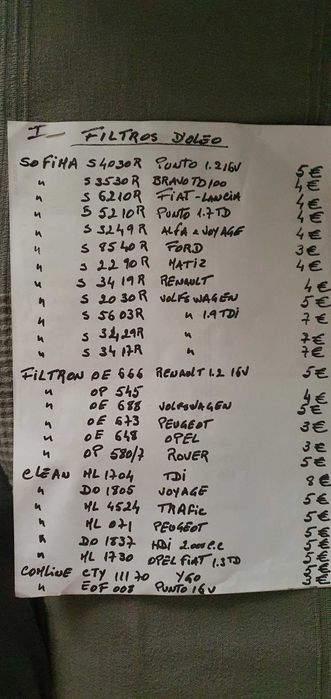 I — FILTROS D'OLEO
SOFIMA S4030R PUNTO 1.2 16V 5€
" S3530R BRAVO TD100 4€
" S 6210R FIAT-LANCIA 4€
" S 5210R PUNTO 1.7 TD 4€
" S 3249R ALFA e VOYAGE 4€
" S 8540R FORD 3€
" S 2290R MATIZ 4€
" S 3419R RENAULT 4€
" S 2030R VOLKSWAGEN 5€
" S 5603R " 1.9 TDi 7€
" S 3429R " 7€
" S 3417R " 7€
FILTRON OE 666 RENAULT 1.2 16V 5€
" OP 545 4€
" OE 688 VOLKSWAGEN 5€
" OE 673 PEUGEOT 3€
" OE 648 OPEL 3€
" OP 580/7 ROVER 5€
CLEAN ML 1704 TDi 8€
" DO 1805 VOYAGE 5€
" ML 4524 TRAFIC 5€
" ML 071 PEUGEOT 5€
" DO 1837 HDi 2.000 C.C 5€
" ML 1730 OPEL FIAT 1.3 TD 5€
COMLINE CTY 11170 YGO 5€
" EOF 008 PUNTO 16V 5€